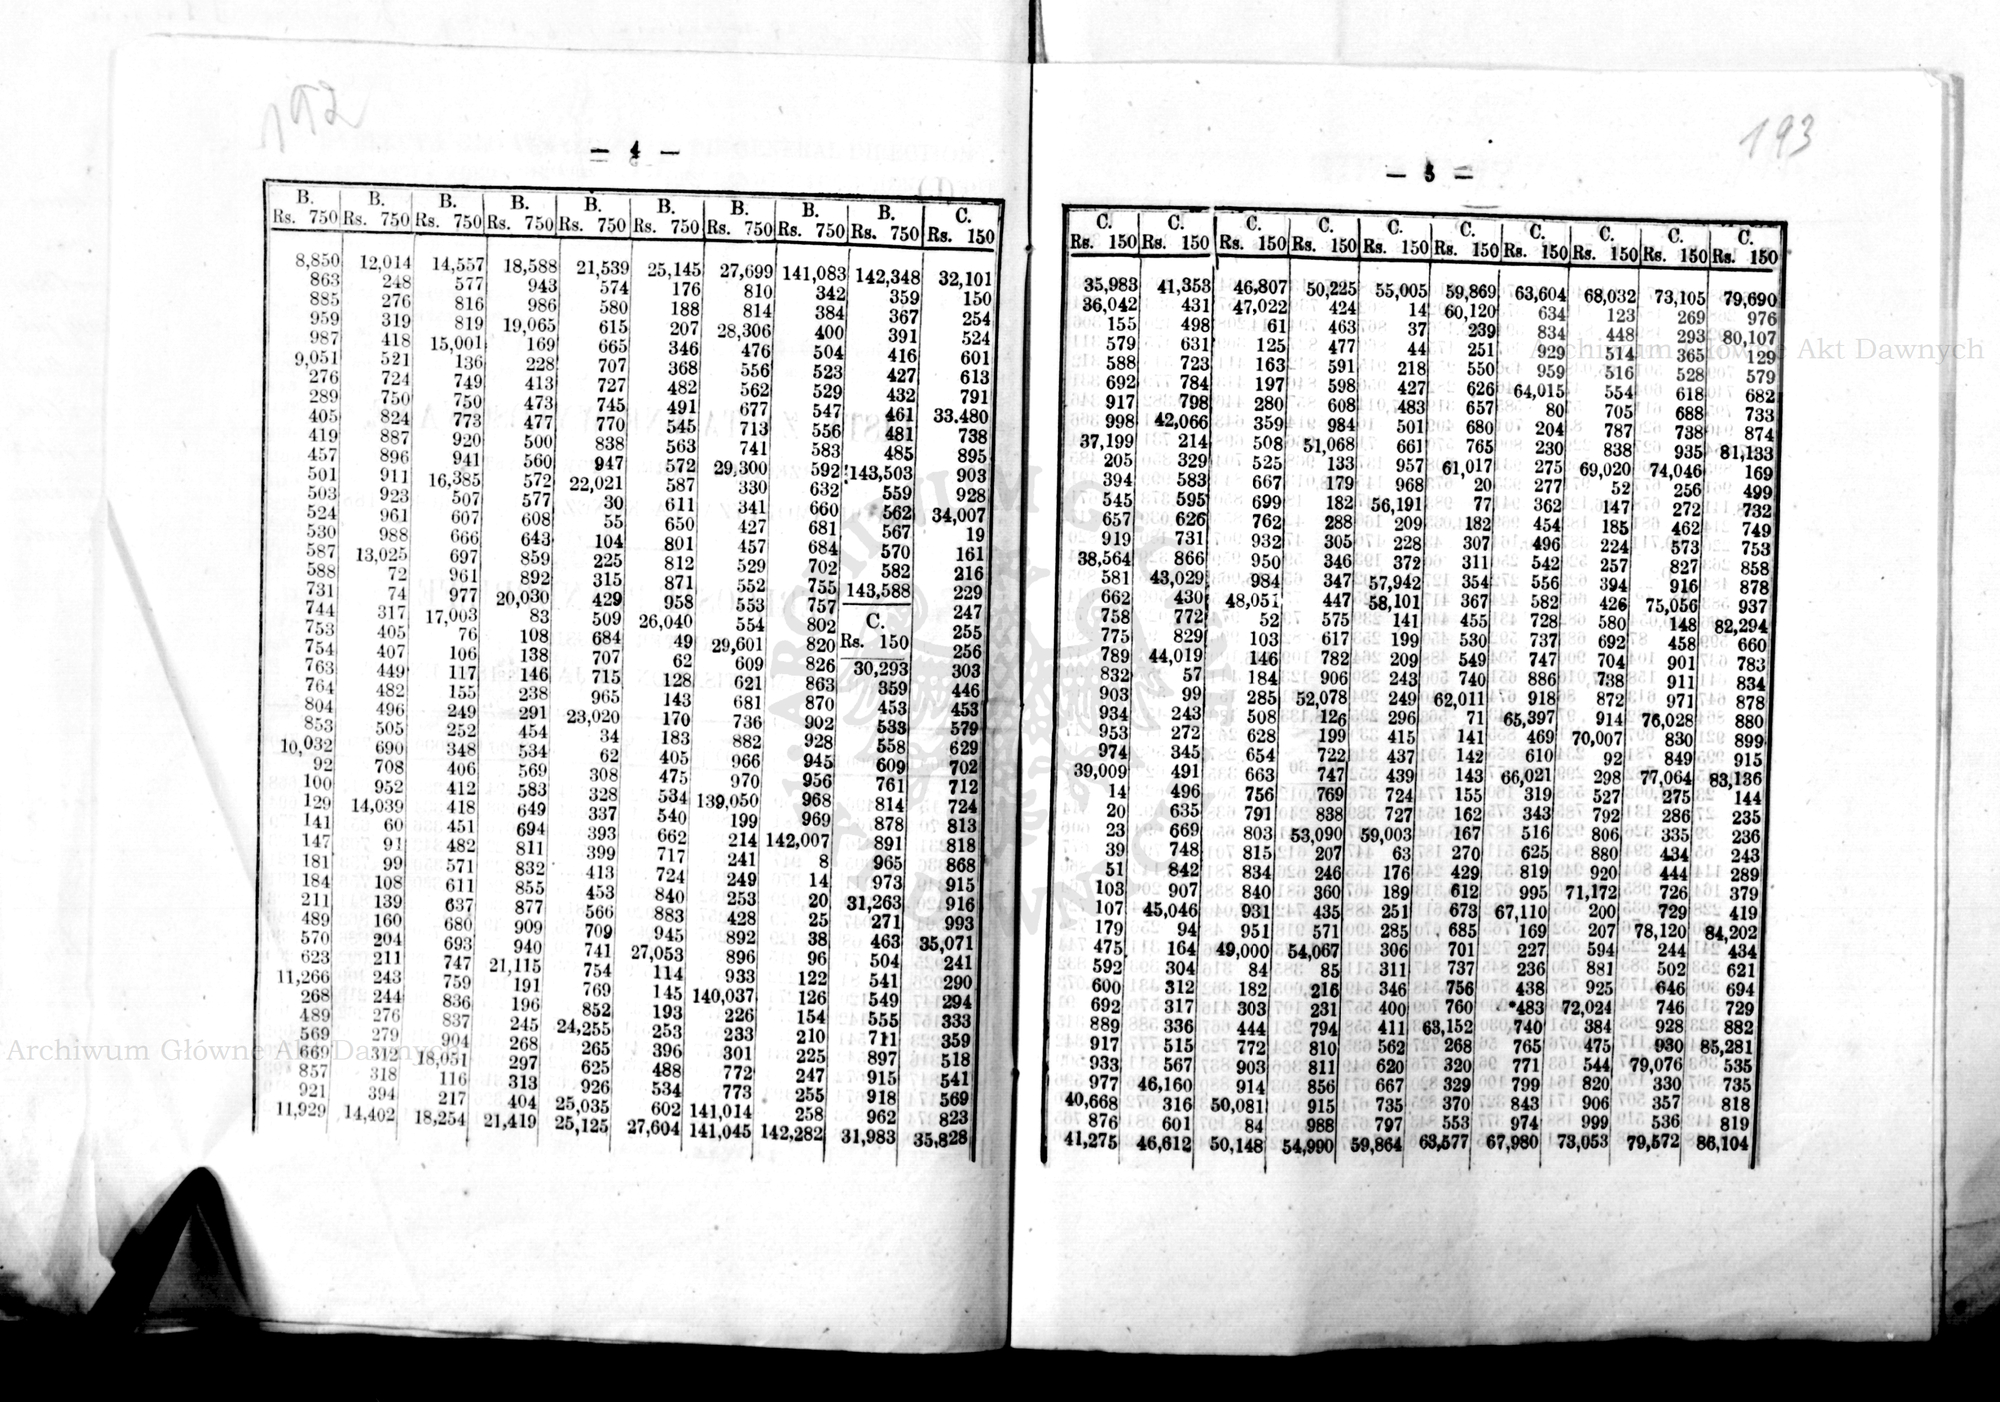 192
= 4 –
B. B. B. B. B. B. B. B. B. C.
Rs. 750 Rs. 750 Rs. 750 Rs. 750 Rs. 750 Rs. 750 Rs. 750 Rs. 750 Rs. 750 Rs. 150
8,850 12,014 14,557 18,588 21,539 25,145 27,699 141,083 142,348 32,101
863 248 577 943 574 176 810 342 359 150
885 276 816 986 580 188 814 384 367 254
959 319 819 19,065 615 207 28,306 400 391 524
987 418 15,001 169 665 346 476 504 416 601
9,051 521 136 228 707 368 556 523 427 613
276 724 749 413 727 482 562 529 432 791
289 750 750 473 745 491 677 547 461 33.480
405 824 773 477 770 545 713 556 481 738
419 887 920 500 838 563 741 583 485 895
457 896 941 560 947 572 29,300 592 143,503 903
501 911 16,385 572 22,021 587 330 632 559 928
503 923 507 577 30 611 341 660 562 34,007
524 961 607 608 55 650 427 681 567 19
530 988 666 643 104 801 457 684 570 161
587 13,025 697 859 225 812 529 702 582 216
588 72 961 892 315 871 552 755 143,588 229
731 74 977 20,030 429 958 553 757 247
744 317 17,003 83 509 26,040 554 802 C. 255
753 405 76 108 684 49 29,601 820 Rs. 150 256
754 407 106 138 707 62 609 826 30,293 303
763 449 117 146 715 128 621 863 359 446
764 482 155 238 965 143 681 870 453 453
804 496 249 291 23,020 170 736 902 533 579
853 505 252 454 34 183 882 928 558 629
10,032 690 348 534 62 405 966 945 609 702
92 708 406 569 308 475 970 956 761 712
100 952 412 583 328 534 139,050 968 814 724
129 14,039 418 649 337 540 199 969 878 813
141 60 451 694 393 662 214 142,007 891 818
147 91 482 811 399 717 241 8 965 868
181 99 571 832 413 724 249 14 973 915
184 108 611 855 453 840 253 20 31,263 916
211 139 637 877 566 883 428 25 271 993
489 160 680 909 709 945 892 38 463 35,071
570 204 693 940 741 27,053 896 96 504 241
623 211 747 21,115 754 114 933 122 541 290
11,266 243 759 191 769 145 140,037 126 549 294
268 244 836 196 852 193 226 154 555 333
489 276 837 245 24,255 253 233 210 711 359
569 279 904 268 265 396 301 225 897 518
669 312 18,051 297 625 488 772 247 915 541
857 318 116 313 926 534 773 255 918 569
921 394 217 404 25,035 602 141,014 258 962 823
11,929 14,402 18,254 21,419 25,125 27,604 141,045 142,282 31,983 35,828
193
– 5 =
C. C. C. C. C. C. C. C. C. C.
Rs. 150 Rs. 150 Rs. 150 Rs. 150 Rs. 150 Rs. 150 Rs. 150 Rs. 150 Rs. 150 Rs. 150
35,983 41,353 46,807 50,225 55,005 59,869 63,604 68,032 73,105 79,690
36,042 431 47,022 424 14 60,120 634 123 269 976
155 498 61 463 37 239 834 448 293 80,107
579 631 125 477 44 251 929 514 365 129
588 723 163 591 218 550 959 516 528 579
692 784 197 598 427 626 64,015 554 618 682
917 798 280 608 483 657 80 705 688 733
998 42,066 359 984 501 680 204 787 738 874
37,199 214 508 51,068 661 765 230 838 935 81,133
205 329 525 133 957 61,017 275 69,020 74,046 169
394 583 667 179 968 20 277 52 256 499
545 595 699 182 56,191 77 362 147 272 732
657 626 762 288 209 182 454 185 462 749
919 731 932 305 228 307 496 224 573 753
38,564 866 950 346 372 311 542 257 827 858
581 43,029 984 347 57,942 354 556 394 916 878
662 430 48,051 447 58,101 367 582 426 75,056 937
758 772 52 575 141 455 728 580 148 82,294
775 829 103 617 199 530 737 692 458 660
789 44,019 146 782 209 549 747 704 901 783
832 57 184 906 243 740 886 738 911 834
903 99 285 52,078 249 62,011 918 872 971 878
934 243 508 126 296 71 65,397 914 76,028 880
953 272 628 199 415 141 469 70,007 830 899
974 345 654 722 437 142 610 92 849 915
39,009 491 663 747 439 143 66,021 298 77,064 83,136
14 496 756 769 724 155 319 527 275 144
20 635 791 838 727 162 343 792 286 235
23 669 803 53,090 59,003 167 516 806 335 236
39 748 815 207 63 270 625 880 434 243
51 842 834 246 176 429 819 920 444 289
103 907 840 360 189 612 995 71,172 726 379
107 45,046 931 435 251 673 67,110 200 729 419
179 94 951 571 285 685 169 207 78,120 84,202
475 164 49,000 54,067 306 701 227 594 244 434
592 304 84 85 311 737 236 881 502 621
600 312 182 216 346 756 438 925 646 694
692 317 303 231 400 760 483 72,024 746 729
889 336 444 794 411 63,152 740 384 928 882
917 515 772 810 562 268 765 475 930 85,281
933 567 903 811 620 320 771 544 79,076 535
977 46,160 914 856 667 329 799 820 330 735
40,668 316 50,081 915 735 370 843 906 357 818
876 601 84 988 797 553 974 999 536 819
41,275 46,612 50,148 54,990 59,864 63,577 67,980 73,053 79,572 86,104
Archiwum Główne Akt Dawnych
Archiwum Główne Akt Dawnych